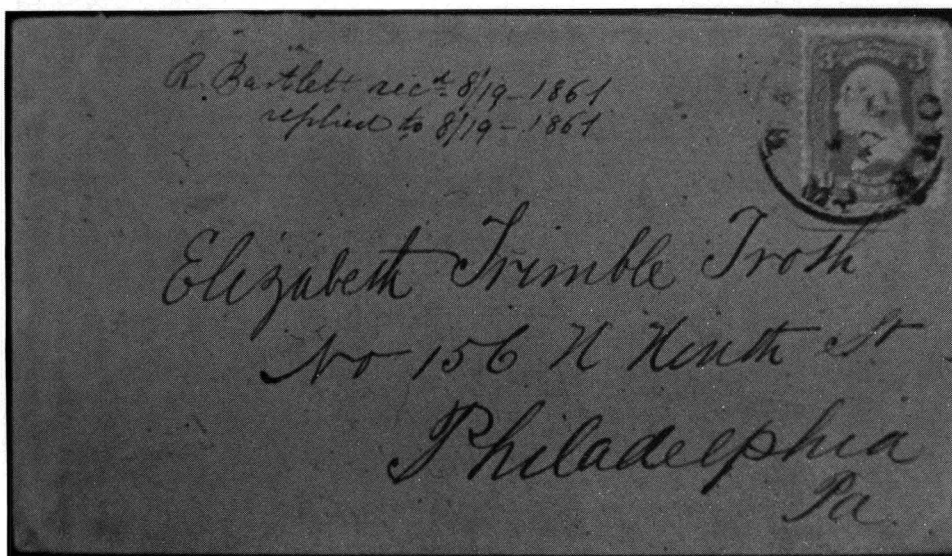 R. Bartlett recd 8/19-1861
replied to 8/19-1861
Elizabeth Trimble Troth
No 156 N Ninth St
Philadelphia
Pa